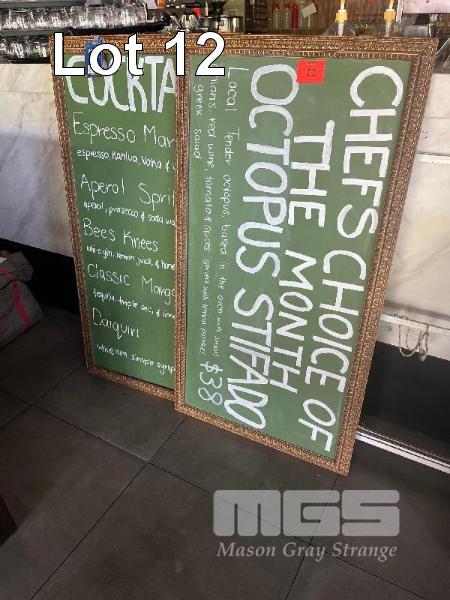 Lot 12
COCKTA
Espresso Mar
espresso, Kahlua, vodka &
Aperol Sprit
aperol, prosecco & soda wa
Bees Knees
white gin, lemon juice, & hone
Classic Marga
tequila, triple sec, & lime
Daiquiri
white rum, simple syrup
12
CHEFS CHOICE OF
THE MONTH
OCTOPUS STIFADO
Local Tender octopus, baked in the oven with small
onions, red wine, tomato & spices
greek salad
$38
MGS
Mason Gray Strange